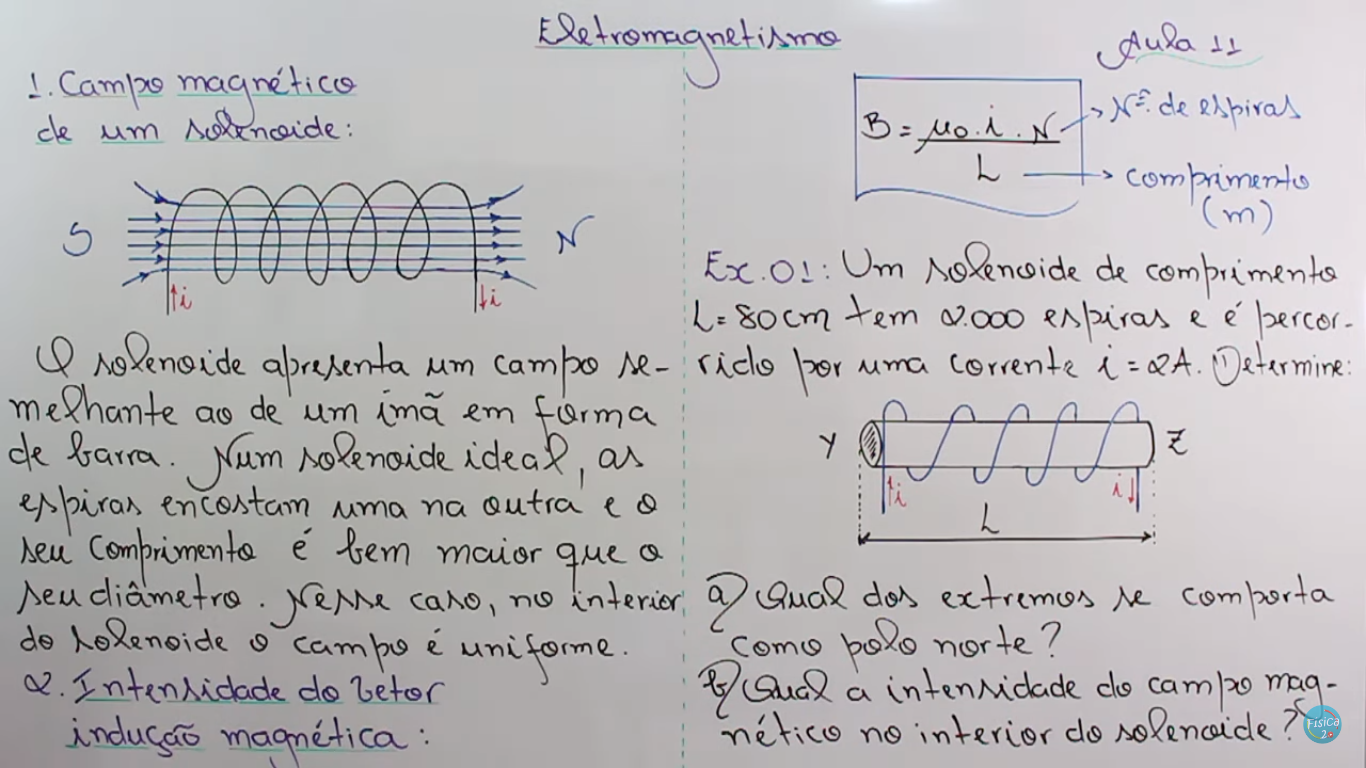 Eletromagnetismo
Aula 11
1. Campo magnético
de um solenoide:
S
N
i
i
O solenoide apresenta um campo se-
melhante ao de um ímã em forma
de barra. Num solenoide ideal, as
espiras encostam uma na outra e o
seu comprimento é bem maior que o
seu diâmetro. Nesse caso, no interior
do solenoide o campo é uniforme.
2. Intensidade do vetor
indução magnética:
B = μ0.i.N
L
Nº de espiras
comprimento
(m)
Ex.01: Um solenoide de comprimento
L=80cm tem 2.000 espiras e é percor-
rido por uma corrente i=2A. Determine:
Y
Z
i
i
L
a) Qual dos extremos se comporta
como polo norte?
b) Qual a intensidade do campo mag-
nético no interior do solenoide?
FÍSICA
2.0